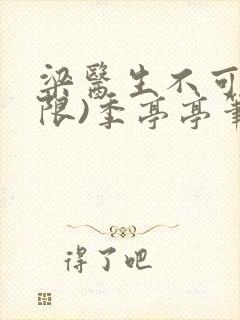 梁醫生不可
限)季亭亭筆
得了吧